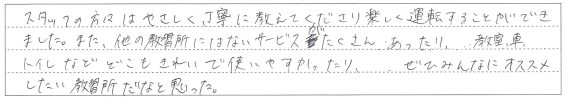 スタッフの方々はやさしく丁寧に教えてくださり楽しく運転することができ
ました。また、他の教習所にはないサービスがたくさんあったり、教室、車
トイレなどどこもきれいで使いやすかったり、ぜひみんなにオススメ
したい教習所だなと思った。